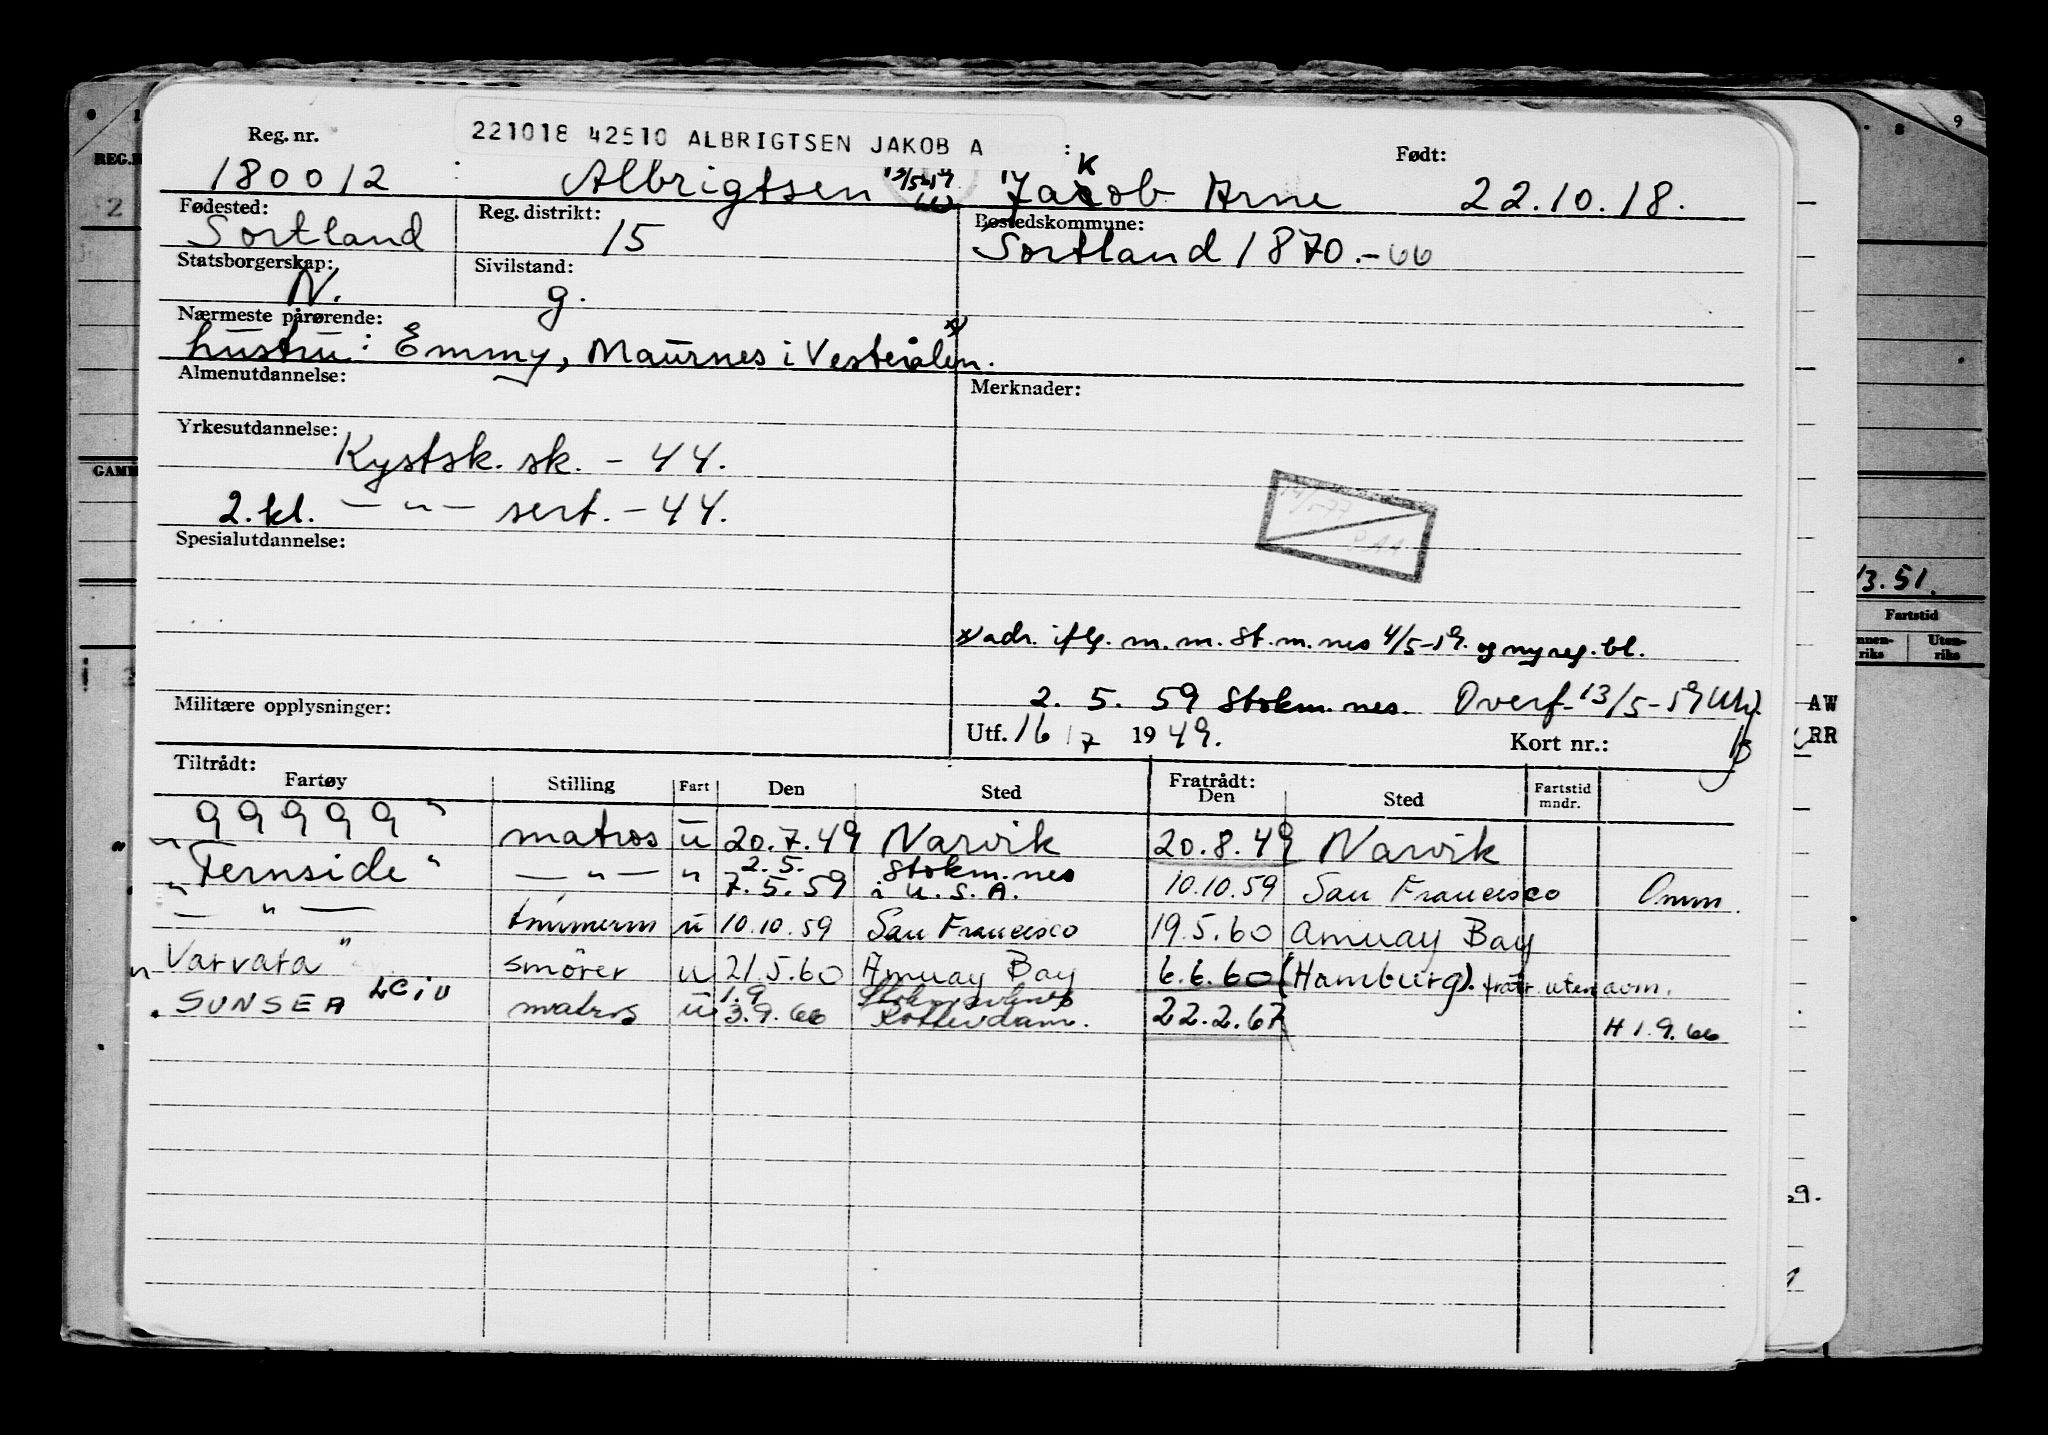 221018 42510 ALBRIGTSEN JAKOB A
Reg. nr.
Født:
180012 Albrigtsen 13/5-59 Jakob Arne 22.10.18.
Fødested: Reg. distrikt: Bostedskommune:
Sortland 15 Sortland 1870.-66
Statsborgerskap: Sivilstand:
N. g.
Nærmeste pårørende:
hustru: Emmy, Maurnes i Vesterålen. x)
Almenutdannelse: Merknader:
Yrkesutdannelse:
Kystsk. sk. - 44.
2. kl. — " — sert. - 44.
Spesialutdannelse:
x) adr. iflg. m.m. St.m.nes 4/5-59. og ny reg. bl.
2. 5. 59 Stokm.nes. Overf. 13/5-59
Militære opplysninger:
Utf. 16/7 1949. Kort nr.:
Tiltrådt: Fratrådt:
Fartøy Stilling Fart Den Sted Den Sted Fartstid mndr.
99999" matros u 20.7.49 Narvik 20.8.49 Narvik
"Fernside" — " — " 2.5. 7.5.59 Stokm.nes i U.S.A. 10.10.59 San Francisco Omm.
— " — tømmerm u 10.10.59 San Francisco 19.5.60 Amuay Bay
"Varvara" smører u 21.5.60 Amuay Bay 6.6.60 (Hamburg). fratr. uten aom.
"SUNSEA LCIU matros u 1.9 3.9.66 Rotterdam. 22.2.67 H 1.9.66
REG.
GAMM
8 9
13.51.
Fartstid
Uten-
riks
AW
RR